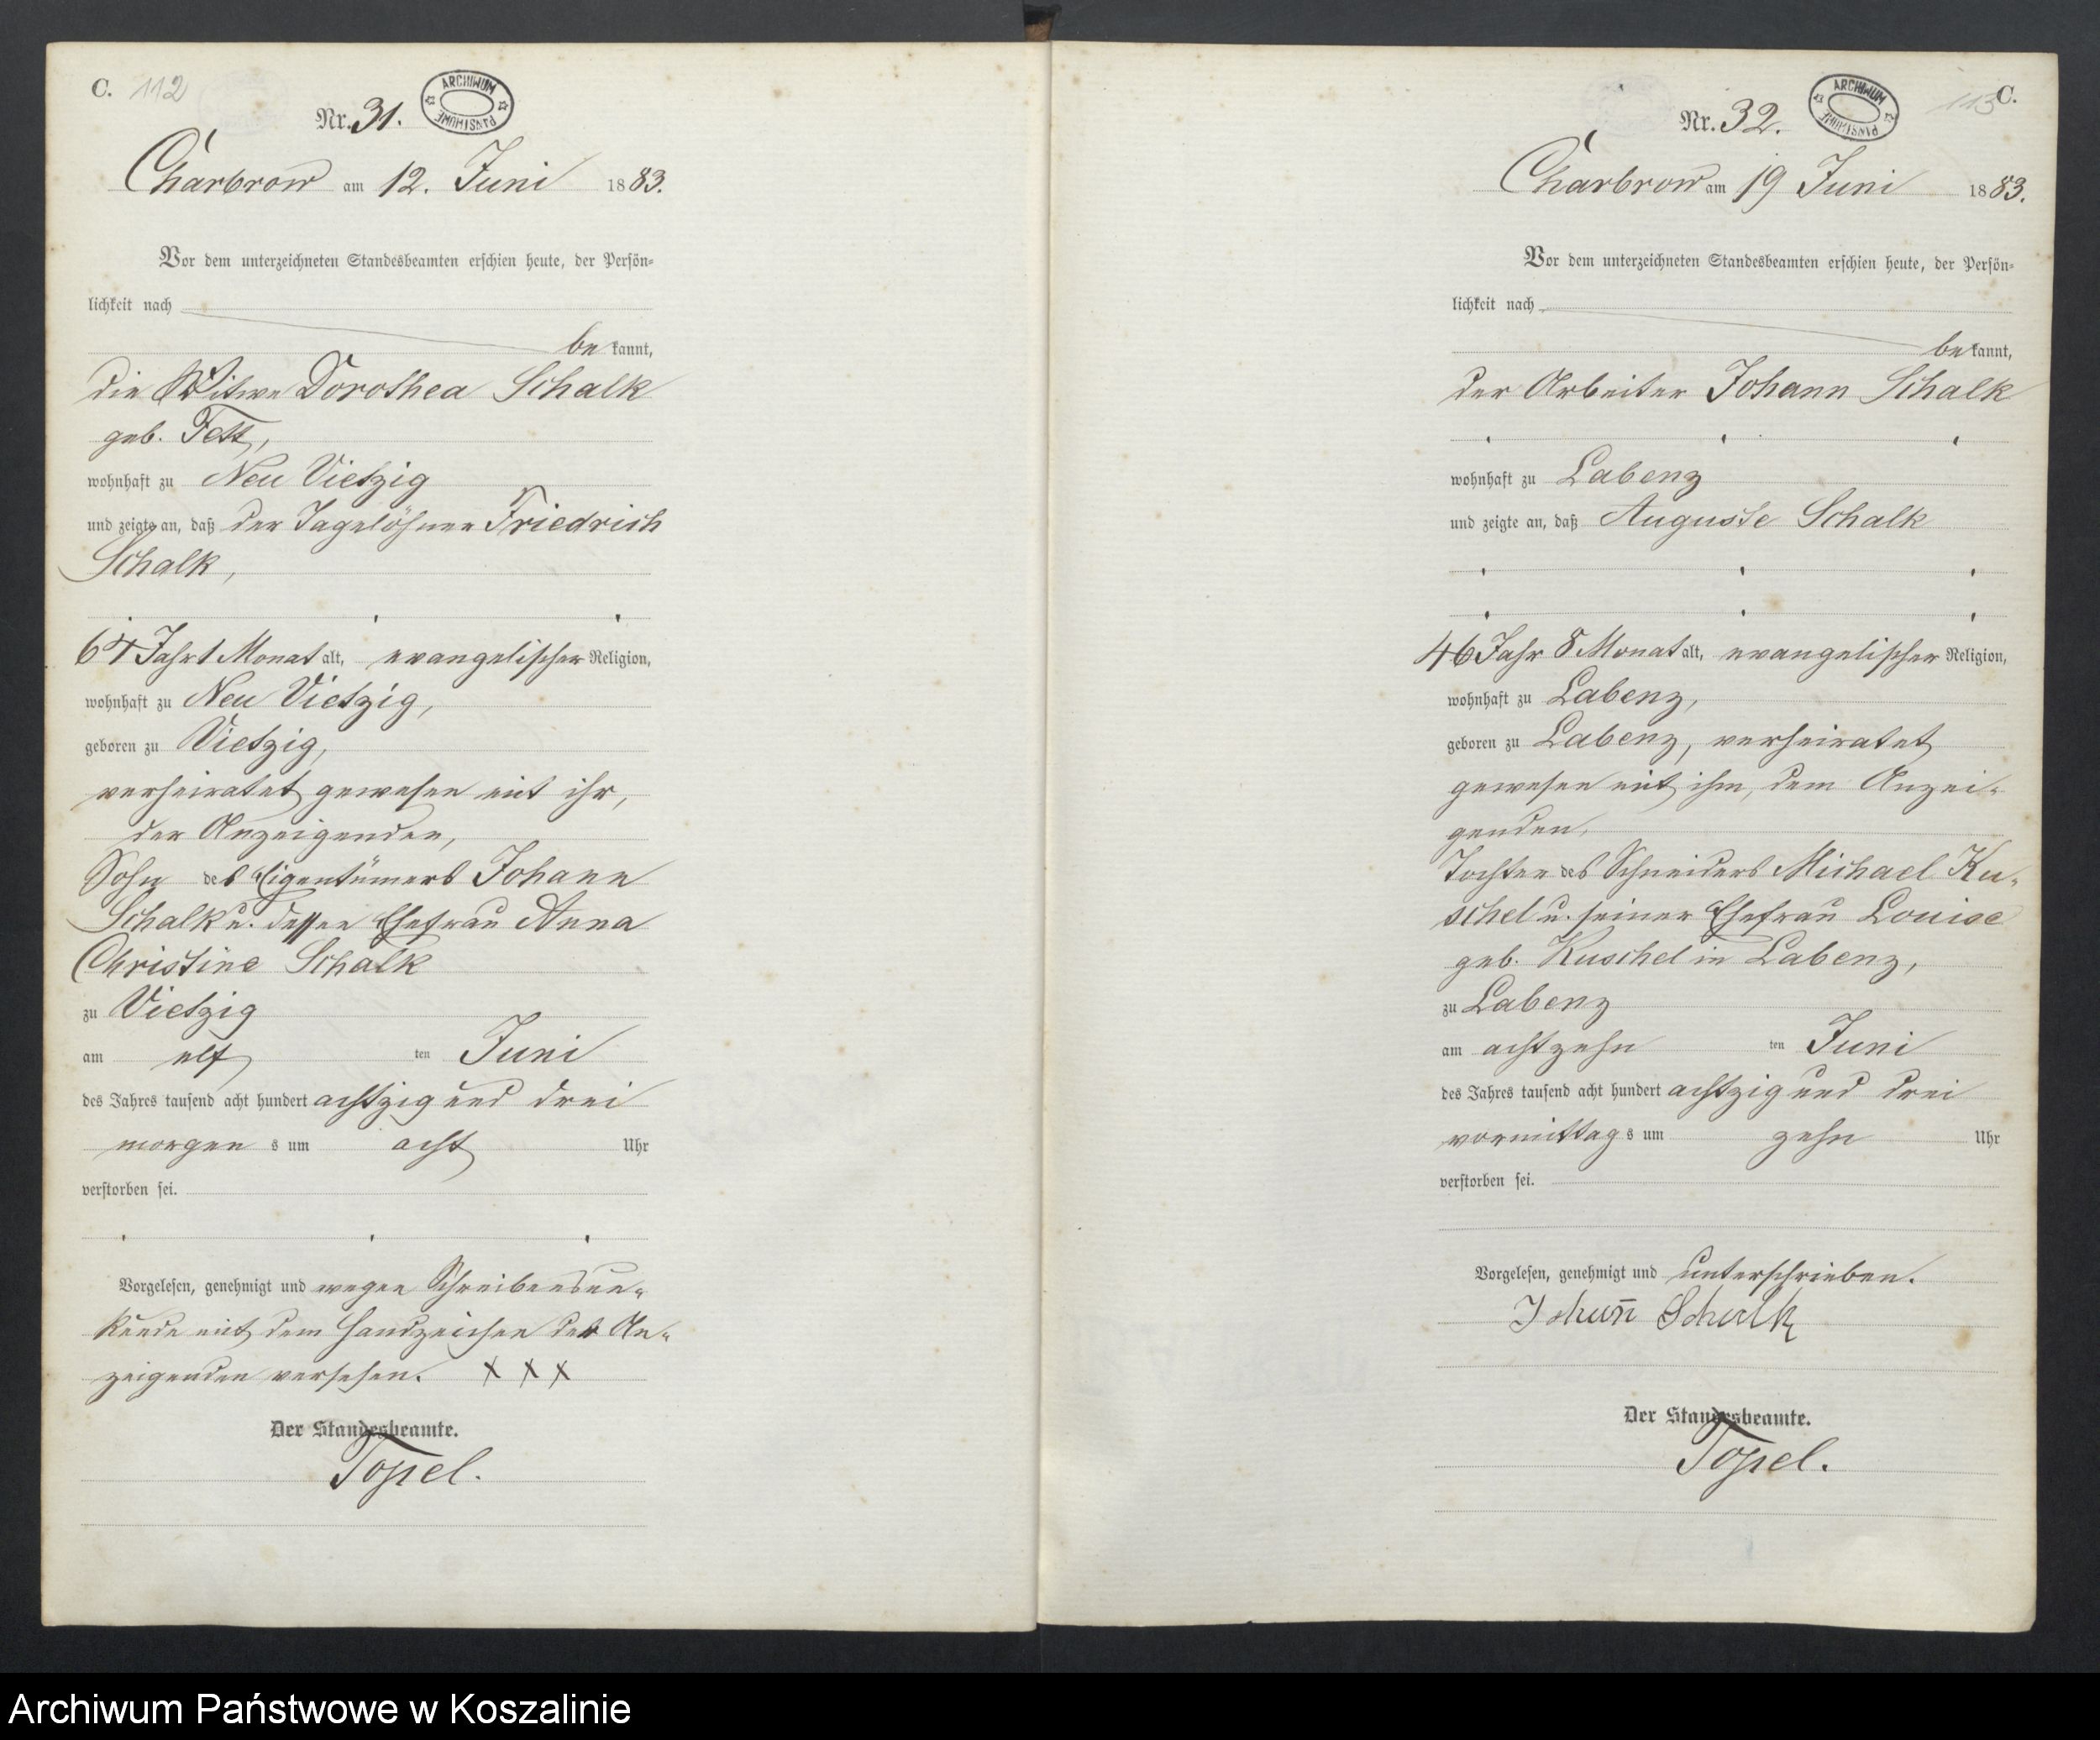 C. 112
Nr. 31.
ARCHIWUM PAŃSTWOWE
Charbrow am 12. Juni 1883.
Vor dem unterzeichneten Standesbeamten erschien heute, der Persön=
lichkeit nach
bekannt,
die Witwe Dorothea Schalk
geb. Fett,
wohnhaft zu Neu Vietzig
und zeigte an, daß der Tagelöhner Friedrich
Schalk,
Jahr 1 Monat alt, evangelischer Religion,
wohnhaft zu Neu Vietzig,
geboren zu Vietzig,
verheiratet gewesen mit ihr,
der Anzeigenden,
Sohn des Eigentümers Johann
Schalk u. dessen Ehefrau Anna
Christine Schalk
zu Vietzig
am elf ten Juni
des Jahres tausend acht hundert achtzig und drei
morgens um acht Uhr
verstorben sei.
Vorgelesen, genehmigt und wegen Schreibensun=
kunde mit dem Handzeichen der An=
zeigenden versehen. X X X
Der Standesbeamte.
Topel.
113 C.
Nr. 32.
ARCHIWUM PAŃSTWOWE
Charbrow am 19 Juni 1883.
Vor dem unterzeichneten Standesbeamten erschien heute, der Persön=
lichkeit nach
bekannt,
der Arbeiter Johann Schalk
wohnhaft zu Labenz
und zeigte an, daß Auguste Schalk
46 Jahr 8 Monat alt, evangelischer Religion,
wohnhaft zu Labenz,
geboren zu Labenz, verheiratet
gewesen mit ihm, dem Anzei=
genden,
Tochter des Schneiders Michael Ku=
schel u. seiner Ehefrau Louise
geb. Kuschel in Labenz,
zu Labenz
am achtzehn ten Juni
des Jahres tausend acht hundert achtzig und drei
vormittags um zehn Uhr
verstorben sei.
Vorgelesen, genehmigt und unterschrieben.
Johan̄ Schalk
Der Standesbeamte.
Topel.
Archiwum Państwowe w Koszalinie